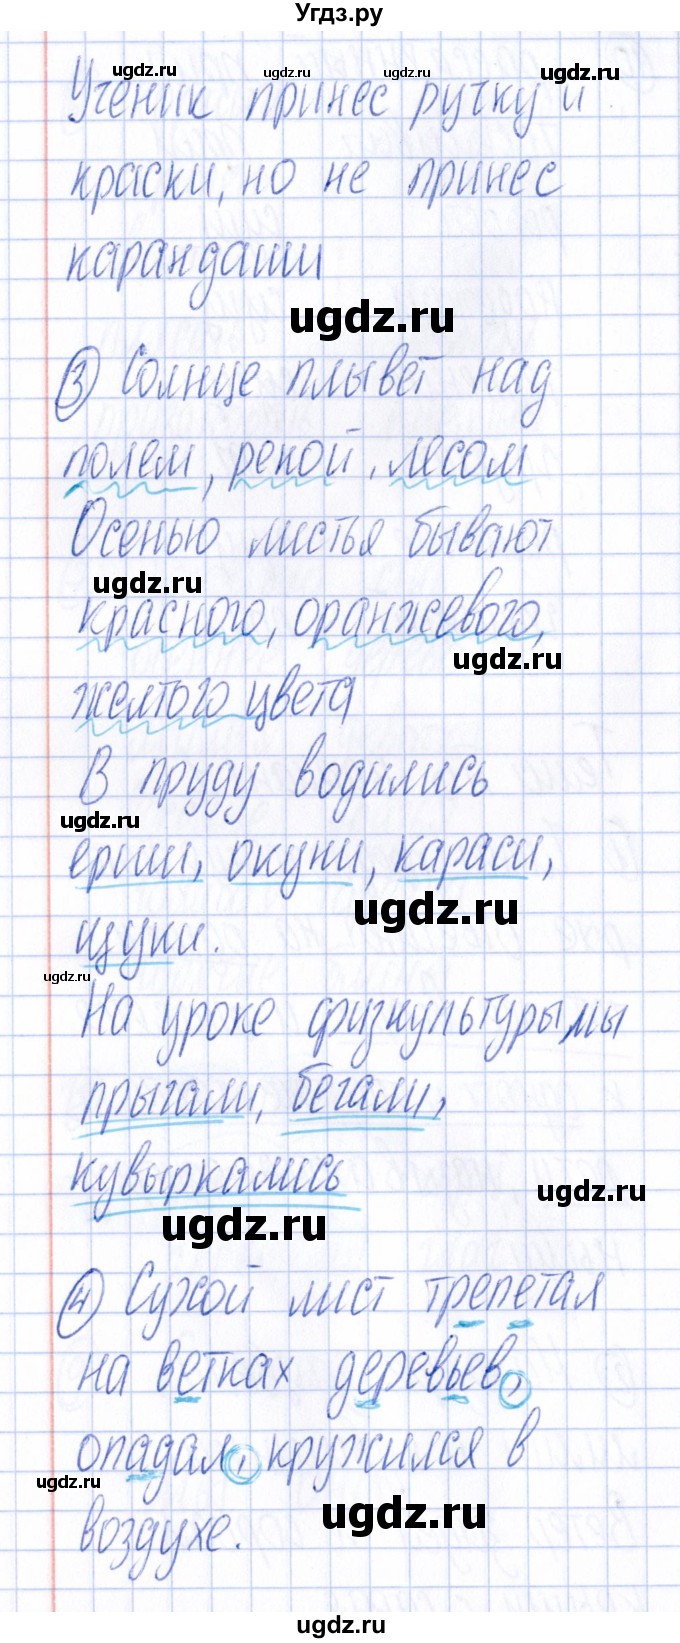 Угдз.ру
ugdz.ru ugdz.ru ugdz.ru ugdz.ru
Ученик принес ручку и
краски, но не принес
карандаши
ugdz.ru
3 Солнце плывет над
полем, рекой, лесом
Осенью листья бывают
ugdz.ru
красного, оранжевого,
ugdz.ru
желтого цвета
В пруду водились
ugdz.ru
ерши, окуни, караси,
ugdz.ru
щуки.
ugdz.ru
На уроке физкультуры мы
прыгали, бегали,
кувыркались
ugdz.ru
ugdz.ru
4 Сухой лист трепетал
на ветках деревьев,
опадал, кружился в
ugdz.ru
ugdz.ru
воздухе.
ugdz.ru